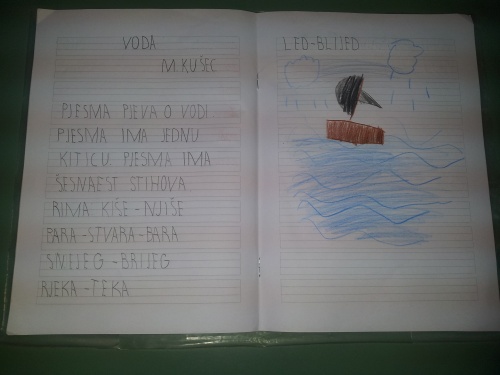 VODA
M. KUŠEC
PJESMA PJEVA O VODI.
PJESMA IMA JEDNU
KITICU. PJESMA IMA
ŠESNAEST STIHOVA.
RIMA KIŠE-NJIŠE
PARA-STVARA-BARA
SNIJEG-BRIJEG
RJEKA-TEKA
LED-BLIJED